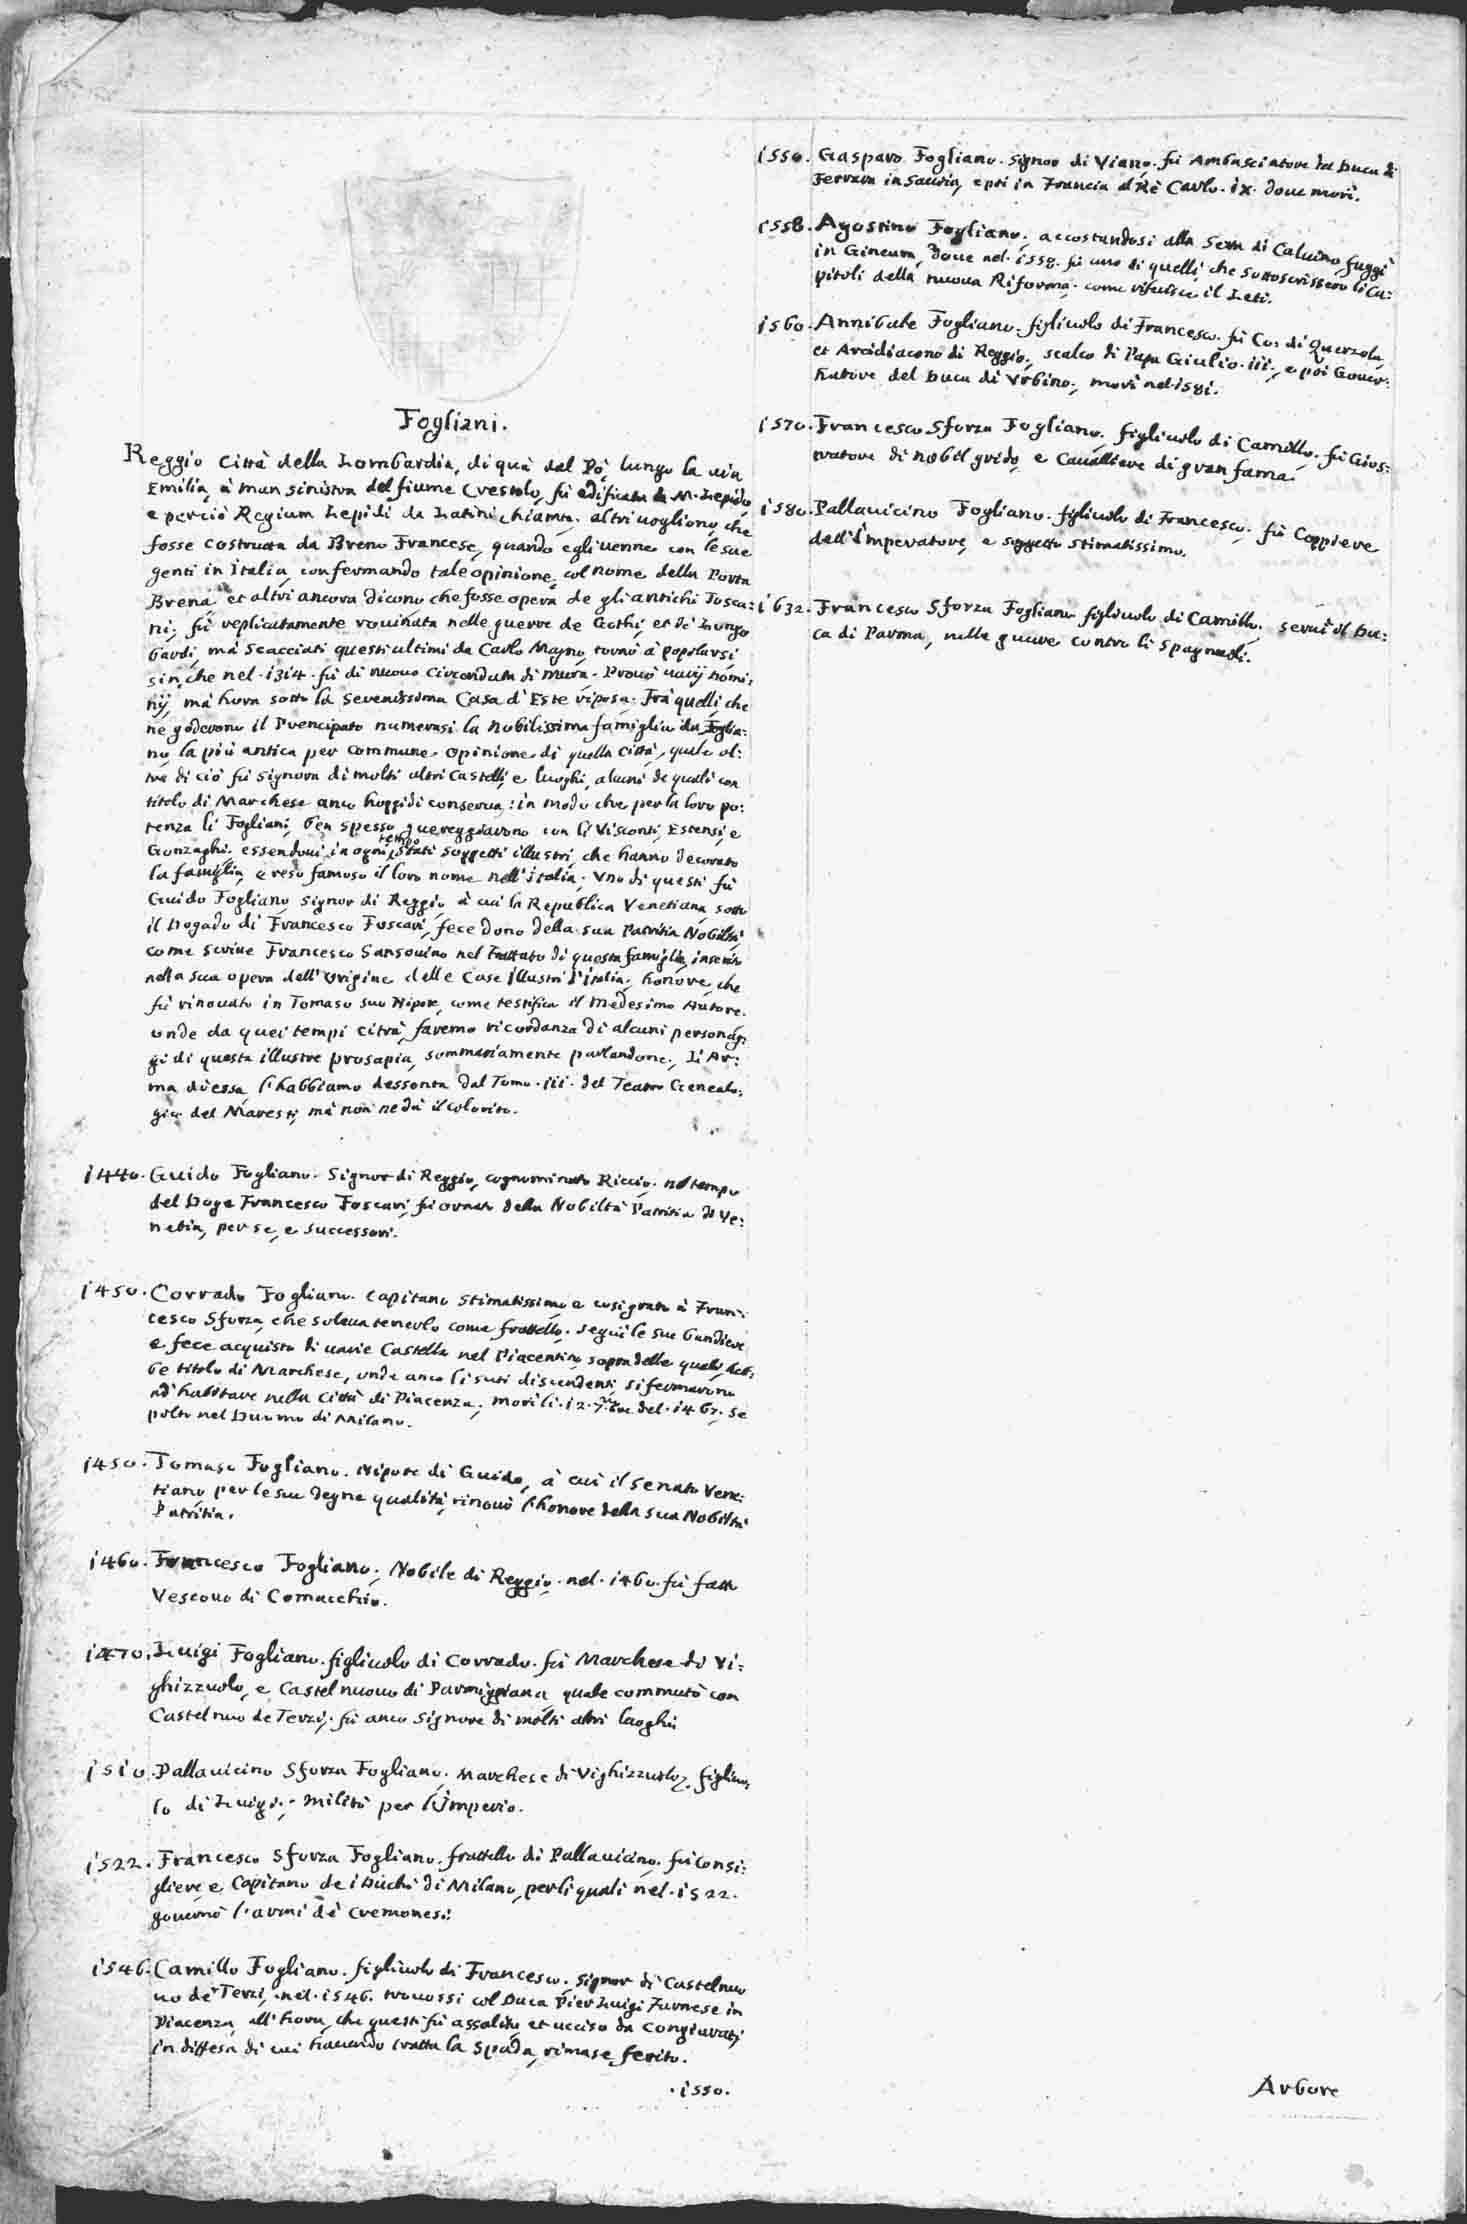 Fogliani.
Reggio Città della Lombardia, di quà dal Pò, lungo la uia
Emilia, à man sinistra del fiume Crestolo, fù edificata da M. Lepido,
e perciò Regium Lepidi da Latini chiamta. altri uogliono, che
fosse costrutta da Breno Francese, quando egli uenne con le sue
genti in italia, confermando tale opinione, col nome della Porta
Brena. et altri ancora dicono che fosse opera de gli antichi Tosca:
ni, fù replicatamente rouinata nelle guerre de Gothi, et dè Longo
bardi, mà scacciati questi ultimi da Carlo Magno, tornò à popolarsi
sin, che nel .1314. fù di nuouo circondata di mura. Prouò uarij domi:
nij, mà hora sotto la serenissima Casa d'Este riposa. Frà quelli, che
ne goderono il Prencipato numerasi la nobilissima famiglia da Foglia:
no, la più antica per commune opinione di quella città, quale ol:
tre di ciò fù signora di molti altri castelli, e luoghi, alcuni de quali con
titolo di Marchese anco hoggidi conserua: in modo che per la loro po:
tenza li Fogliani, ben spesso guereggiarono con li Visconti, Estensi, e
Gonzaghi. essendoui in ogni tempo stati soggetti illustri, che hanno decorato
la famiglia, e reso famoso il loro nome nell'italia. Vno di questi fù
Guido Fogliano, signor di Reggio, à cui la Republica Venetiana, sotto
il Dogado di Francesco Foscari, fece dono della sua Patritia Nobiltà,
come scriue Francesco Sansouino nel trattato di questa famiglia, inserito
nella sua opera dell'origine delle Case illustri d'italia. honore, che
fù rinouato in Tomaso suo Nipote, come testifica il medesimo Autore.
onde da quei tempi citrà, faremo ricordanza di alcuni personag:
gi di questa illustre prosapia, sommariamente parlandone. L'Ar:
ma di essa, l'habbiamo dessonta dal Tomo .iii. del Teatro Genealo:
gico del Maresti, mà non ne dà il colorito.
1440. Guido Fogliano. Signor di Reggio, cognominato Riccio. nel tempo
del Doge Francesco Foscari, fù ornato della Nobiltà Patritia di Ve:
netia, per se, e successori.
1450. Corrado Fogliano. Capitano stimatissimo e cosi grato à Fran:
cesco Sforza, che soleua tenerlo come frattello. seguì le sue bandiere
e fece acquisto di uarie Castella nel Piacentino, sopra delle quali heb:
be titolo di Marchese, onde anco li suoi discendenti, si fermarono
ad habitare nella Città di Piacenza, morì li .12. 7bre del .1467. se
polto nel Duomo di Milano.
1450. Tomaso Fogliano. Nipote di Guido, à cui il Senato Vene:
tiano per le sue degne qualità, rinouò l'honore della sua Nobiltà
Patritia.
1460. Francesco Fogliano. Nobile di Reggio. nel .1460. fù fatto
Vescouo di Comacchio.
1470. Luigi Fogliano. figliuolo di Corrado. fù Marchese di Vi:
ghizzuolo, e Castel nuouo di Parmiggiana, quale commutò con
Castelnuo de Terzi. fù anco signore di molti altri luoghi
1510. Pallauicino Sforza Fogliano. Marchese di Vighizzuolo, figliuo:
lo di Luigi. militò per l'imperio.
1522. Francesco Sforza Fogliano. frattello di Pallauicino. fù Consi:
gliere, e Capitano de i Duchi di Milano, per li quali nel .1522.
gouernò l'armi dè Cremonesi.
1546. Camillo Fogliano. figliuolo di Francesco. signor di Castelnuo
uo dè Terzi, nel .1546. trouossi col Duca Pier Luigi Farnese in
Piacenza, all'hora, che questi fù assalito, et ucciso da Congiurati,
in diffesa di cui hauendo tratta la spada, rimase ferito.
.1550.
1550. Gasparo Fogliano. signor di Viano. fù Ambasciatore del Duca di
Ferrara in Sauoia, e poi in Francia al Rè Carlo .ix. doue morì.
1558. Agostino Fogliano. accostandosi alla setta di Caluino, fuggì
in Gineura, doue nel .1558. fù uno di quelli, che sottoscrissero li Ca:
pitoli della nuoua Riforma. come riferisce il Leti.
1560. Annibale Fogliano. figliuolo di Francesco. fù Co: di Querzola,
et Arcidiacono di Reggio, scalco di Papa Giulio .iii., e poi Gouer:
natore del Duca di Vrbino. morì nel .1581.
1570. Francesco Sforza Fogliano. figliuolo di Camillo. fù Gios:
tratore di nobil grido, e Caualliere di gran fama.
1580. Pallauicino Fogliano. figliuolo di Francesco. fù Coppiere
dell'imperatore, e soggetto stimatissimo.
1632. Francesco Sforza Fogliano figliuolo di Camillo. seruì il Du:
ca di Parma, nelle guerre contro li spagnuoli.
Arbore